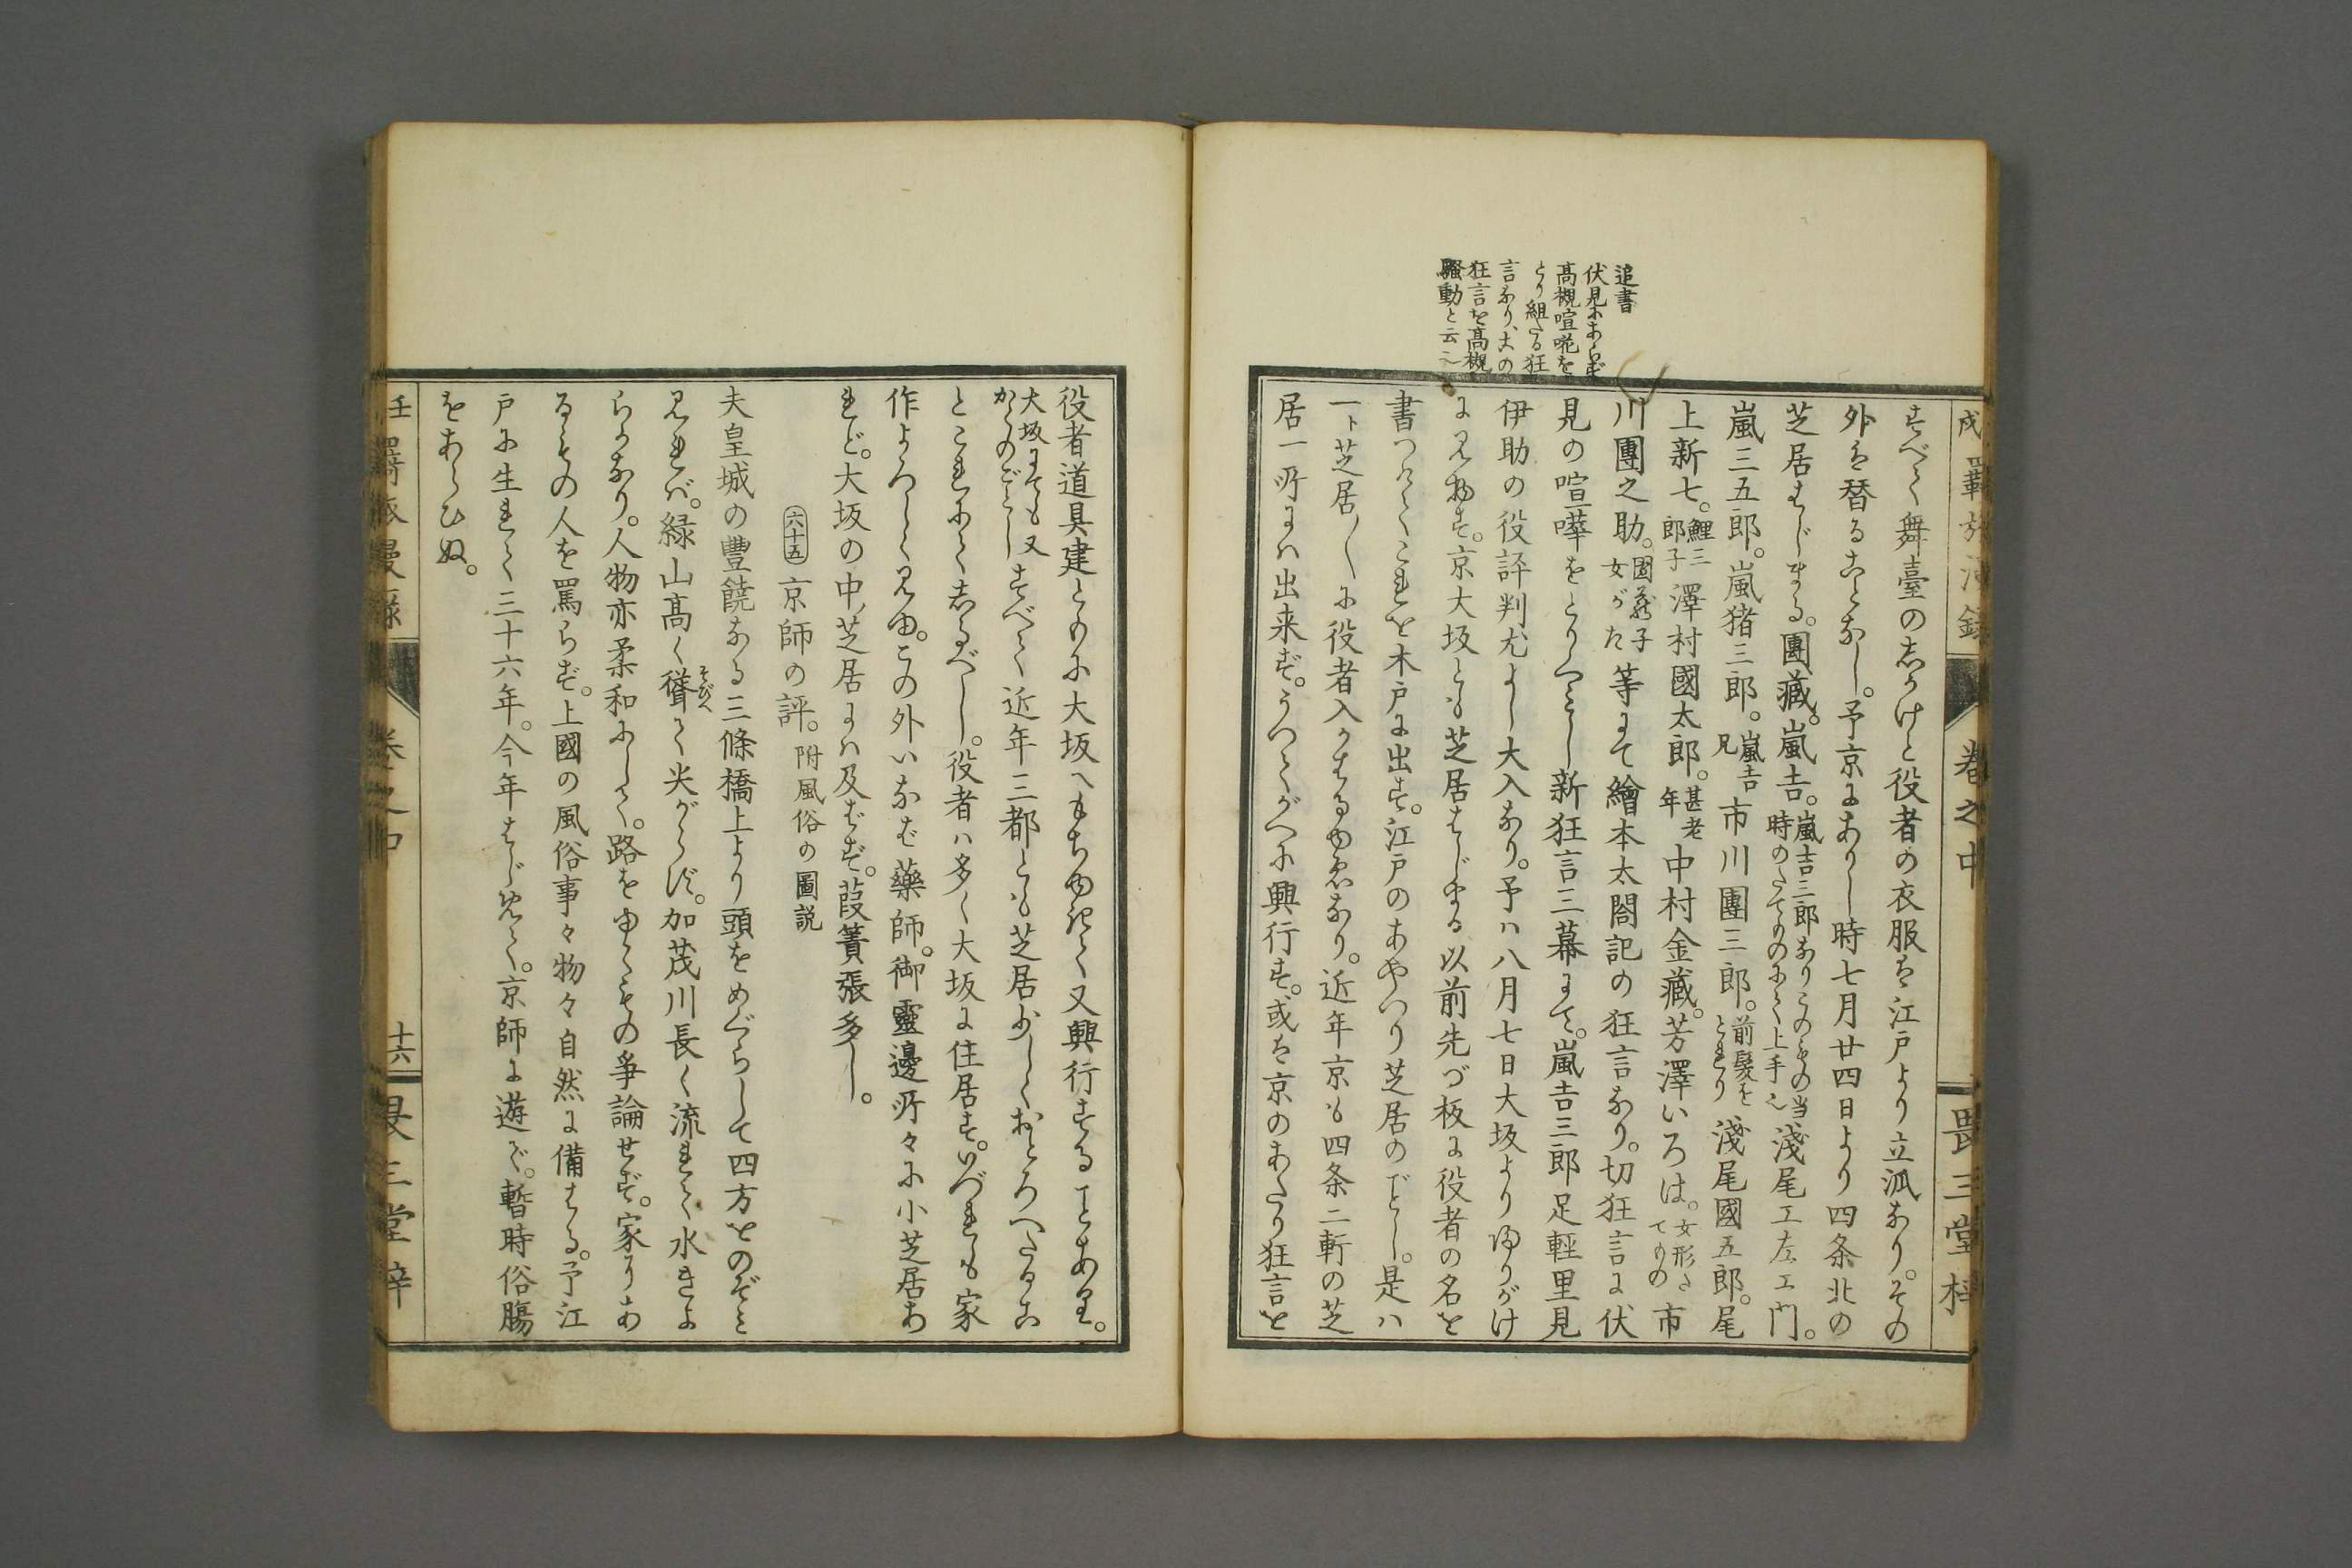 追書
伏見にあらず
髙槻喧𠵅を
とり組たる狂
言なり、この
狂言を髙槻
騒動と云也
戌羇旅漫録 巻之中 畏三堂梓
すべて舞臺のしかけと役者の衣服は江戸より立派なり。その
外は替ることなし。予京にありし時七月廿四日より四条北の
芝居はじまる。團藏。嵐吉。嵐吉三郎なりこのもの当時のたてものにて上手也淺尾工左エ門。
嵐三五郎。嵐猪三郎。嵐吉兄市川團三郎。前髪をとれり淺尾國五郎。尾
上新七。鯉三郎子澤村國太郎。甚老年中村金藏。芳澤いろは。女形たてもの市
川團之助。團藏子女がた等にて繪本太閤記の狂言なり。切狂言に伏
見の喧嘩をとりくみし新狂言三幕にて。嵐吉三郎足輕里見
伊助の役評判尤よし大入なり。予ハ八月七日大坂よりかへりがけ
に見物す。京大坂とも芝居はじまる以前先づ板に役者の名を
書つけてこれを木戸に出す。江戸のあやつり芝居のごとし。是ハ
一ト芝居〳〵に役者入かはるゆゑなり。近年京も四条二軒の芝
居一所にハ出来ず。うつてがへに興行す。或は京のあたり狂言を
役者道具建ともに大坂へもちゆきて又興行することあり。
大坂にても又かくのごとしすべて近年三都とも芝居少しくおとろへたるこ
とこれにてしるべし。役者ハ多く大坂に住居す。いづれも家
作よろしく見ゆ。この外いなば薬師。御靈邊所々に小芝居あ
れど。大坂の中芝居にハ及ばず。葭簀張多し。
六十五 京師の評。附風俗の圖説
夫皇城の豐饒なる三條橋上より頭をめぐらして四方をのぞみ
見れば。緑山髙く聳そびへて尖がらず。加茂川長く流れて水きよ
らかなり。人物亦柔和にして。路をゆくもの爭論せず。家にあ
るもの人を罵らず。上國の風俗事々物々自然に備はる。予江
戸に生れて三十六年。今年はじめて。京師に遊で。暫時俗膓
をあらひぬ。
壬 羇旅漫録 巻之中 十六 畏三堂梓